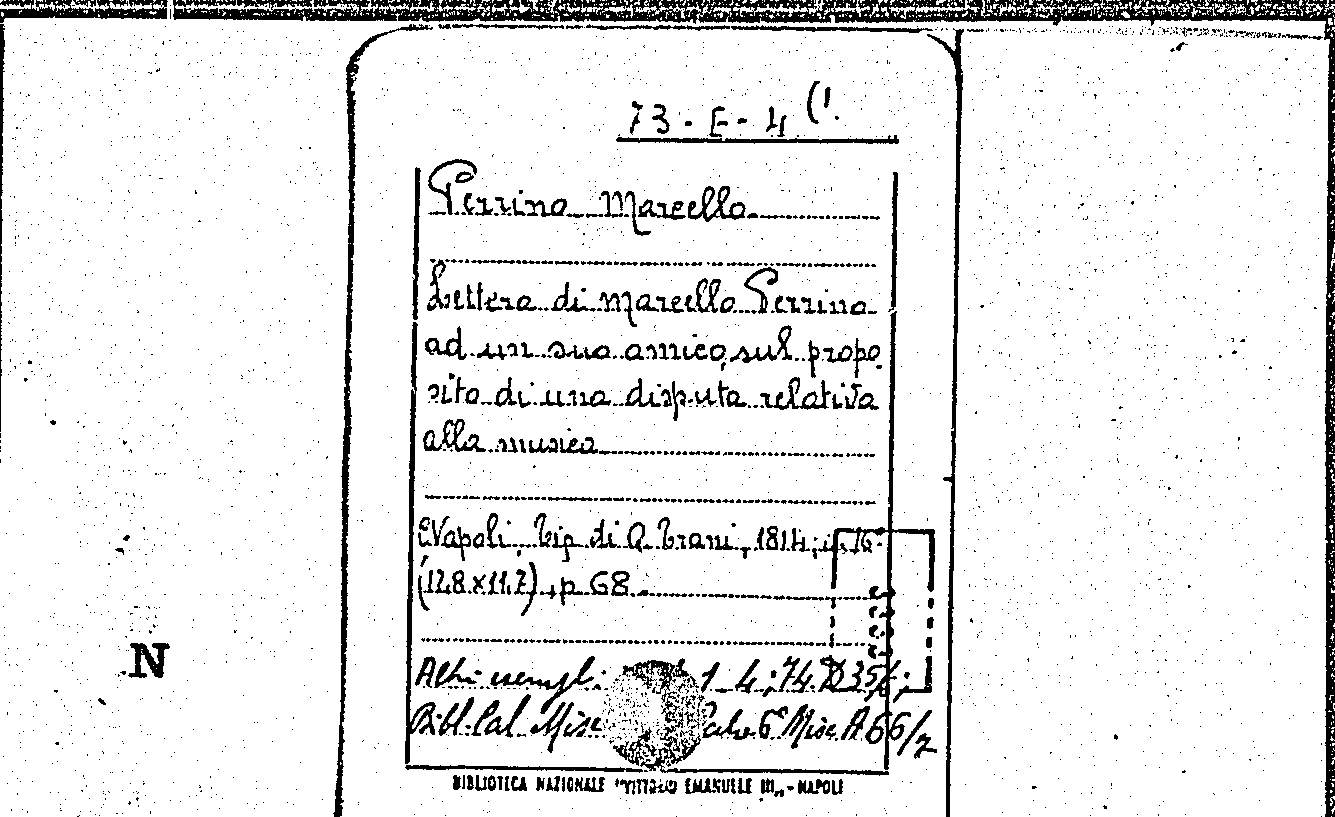 73-E-4 (1.
Perrino Marcello
Lettera di Marcello Perrino
ad un suo amico, sul propo
sito di una disputa relativa
alla musica
Napoli, Tip. di A. Trani, 1814; in 16°
(12,8 x 11,7), p 68.
N
Altri esempl: 1 4; 74 D 35
Bibl. Cal. Misc 6° Misc A 66/2
BIBLIOTECA NAZIONALE "VITTORIO EMANUELE III„ - NAPOLI